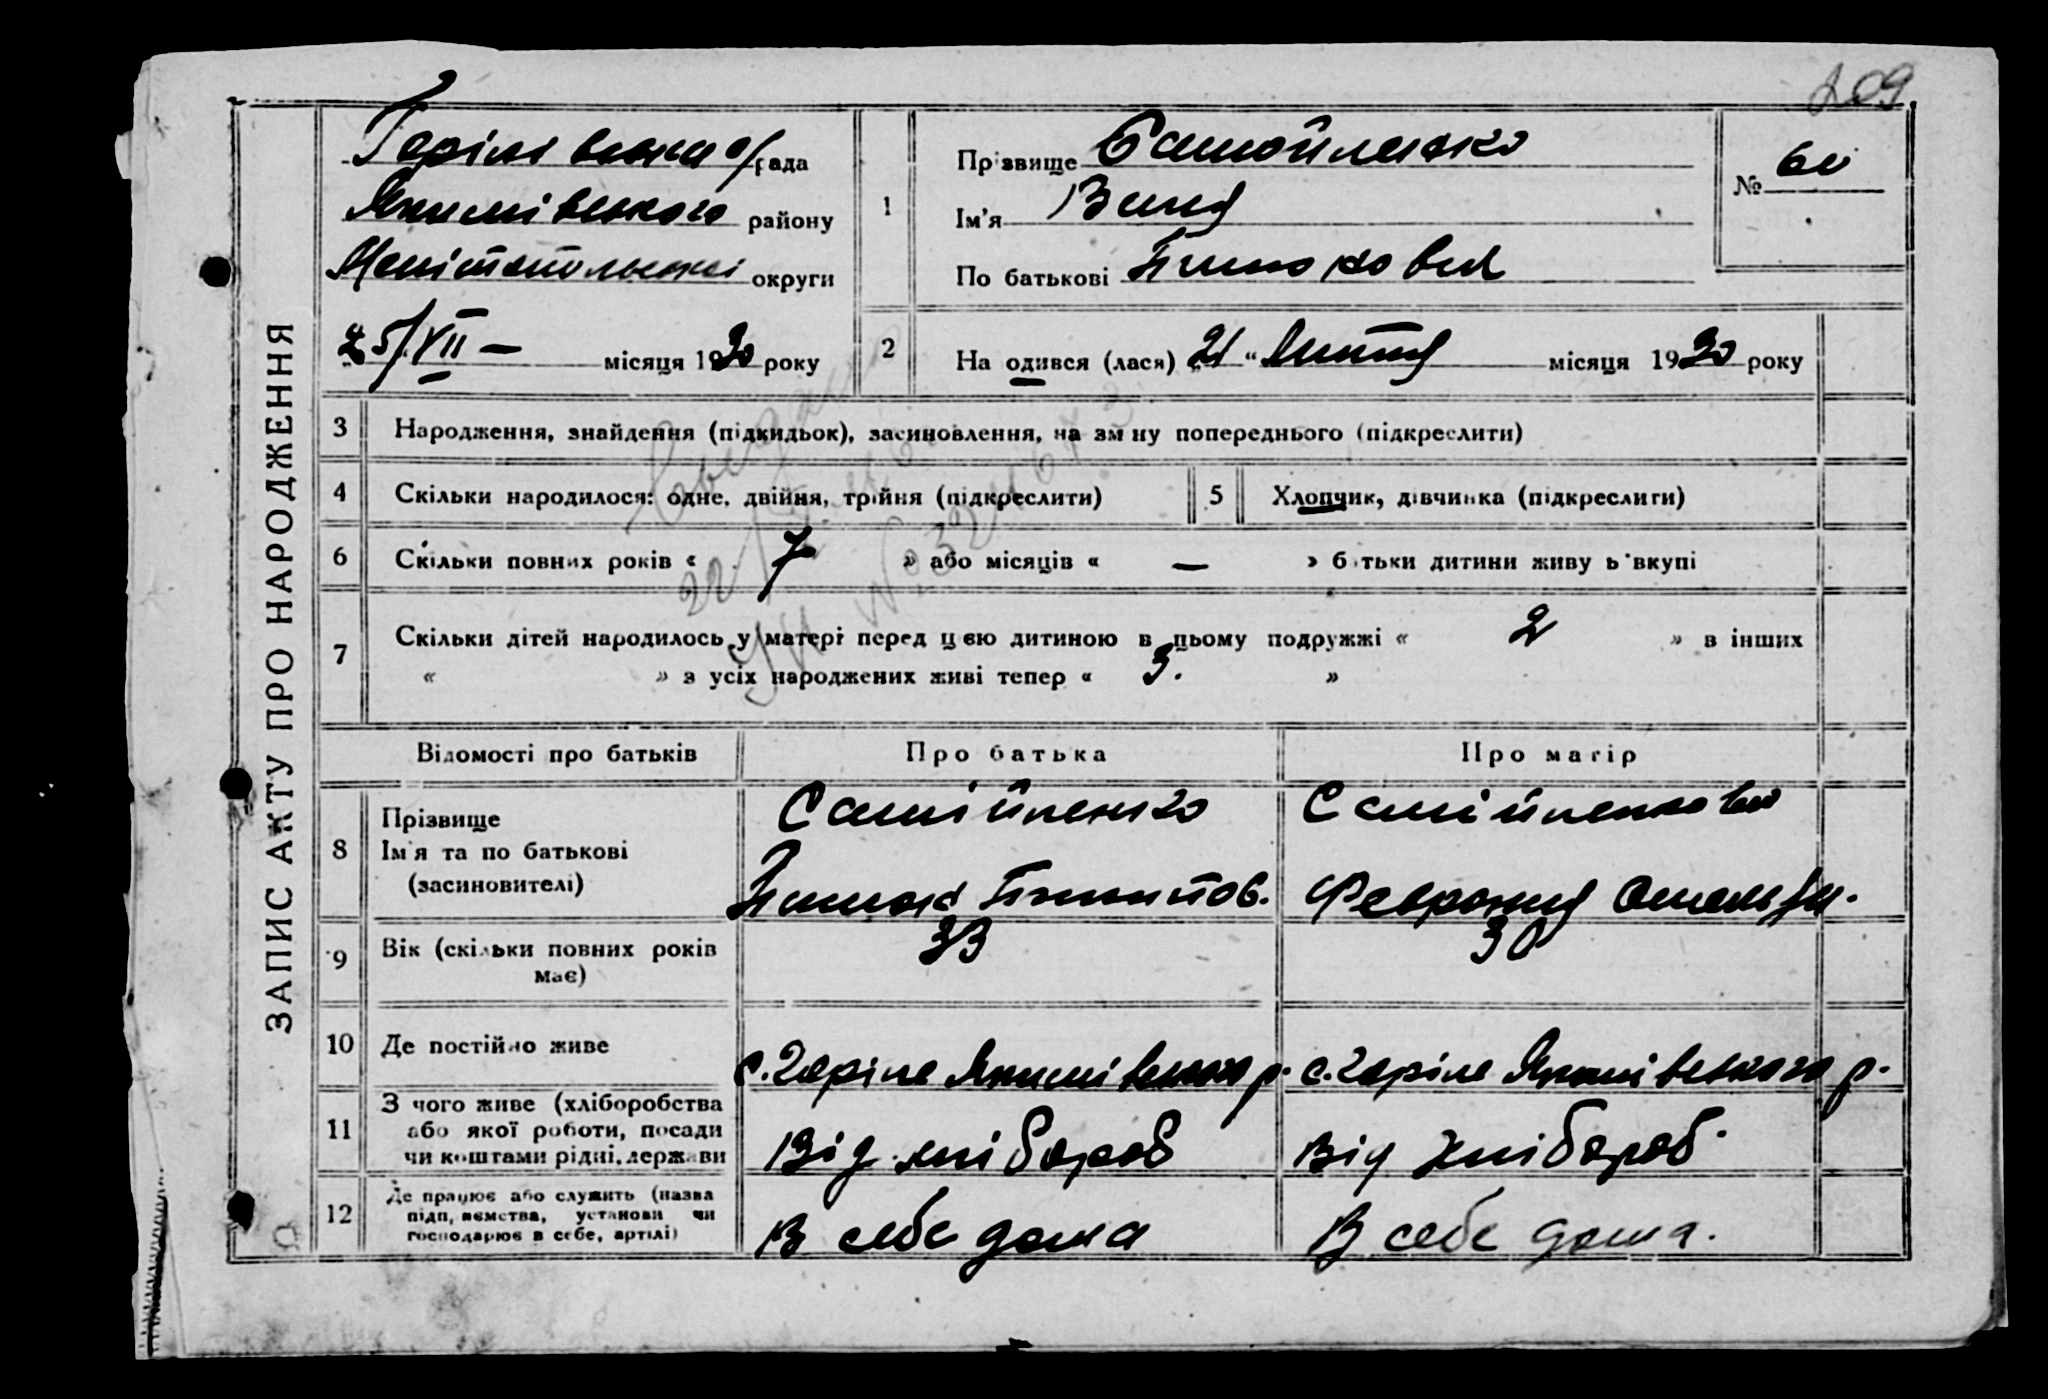 209
ЗАПИС АКТУ ПРО НАРОДЖЕННЯ
Горілівська с/рада
Якимівського району
Мелітопольської округи
25/VII — місяця 1930 року
1
Прізвище Самойленко
Ім'я Ваня
По батькові
№ 60
2
На одився (лася) „21 “ Лютня місяця 1930 року
3 Народження, знайдення (підкидьок), засиновлення, на зміну попереднього (підкреслити)
4 Скільки народилося: одне, двійня, трійня (підкреслити)
5 Хлопчик, дівчинка (підкреслиги)
6 Скільки повних років « 7 » або місяців « — » батьки дитини живуть вкупі
7 Скільки дітей народилось у матері перед цією дитиною в цьому подружжі « 2 » в інших
« » з усіх народжених живі тепер « 3. »
Відомості про батьків
Про батька
Про матір
8 Прізвище
Ім'я та по батькові
(засиновителі)
Самійленко
Самійленкова
Февронія Омельян.
9 Вік (скільки повних років
має)
33
30
10 Де постійно живе
с. Горіле Якимівського р.
с. Горіле Якимівського р.
11 З чого живе (хліборобства
або якої роботи, посади
чи коштами рідні, держави
Від хлібороб
Від хлібороб.
12 Де працює або служить (назва
підприємства, установи чи
господарює в себе, артілі)
В себе дома
В себе дома.